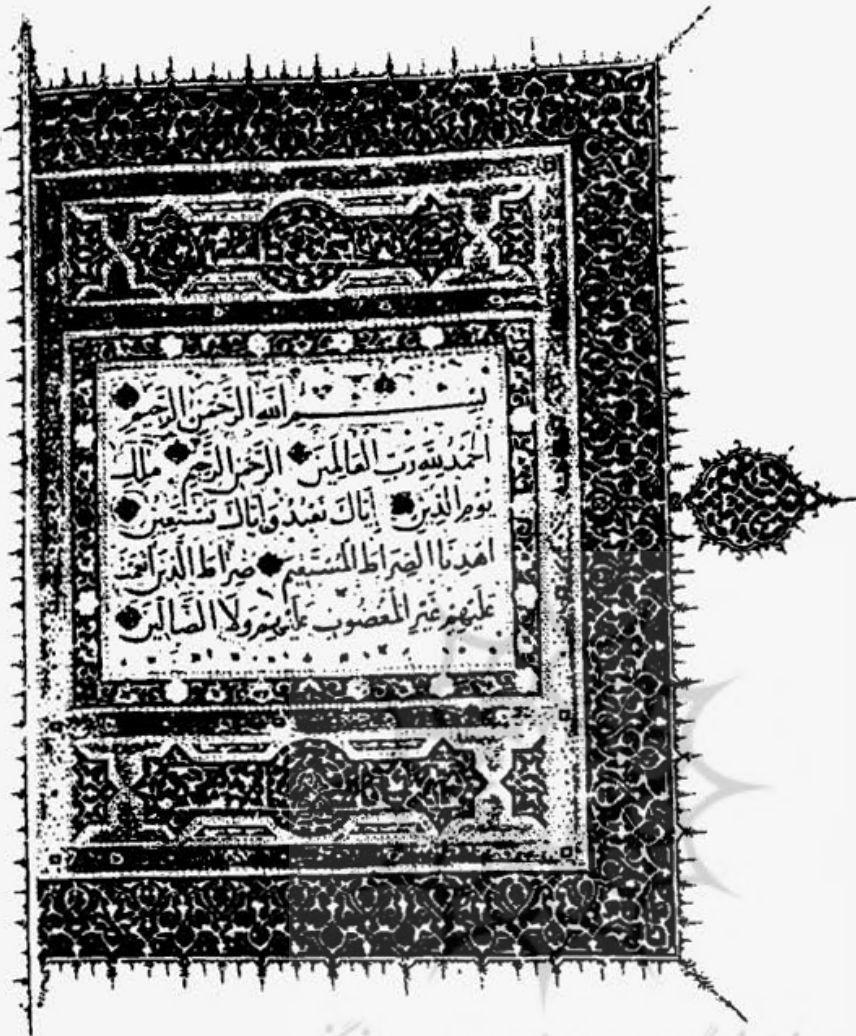 بِسْمِ اللَّهِ الرَّحْمَنِ الرَّحِيمِ
الْحَمْدُ لِلَّهِ رَبِّ الْعَالَمِينَ الرَّحْمَنِ الرَّحِيمِ مَلِكِ
يَوْمِ الدِّينِ إِيَّاكَ نَعْبُدُ وَإِيَّاكَ نَسْتَعِينُ
اهْدِنَا الصِّرَاطَ الْمُسْتَقِيمَ صِرَاطَ الَّذِينَ أَنْعَمْتَ
عَلَيْهِمْ غَيْرِ الْمَغْضُوبِ عَلَيْهِمْ وَلَا الضَّالِّينَ